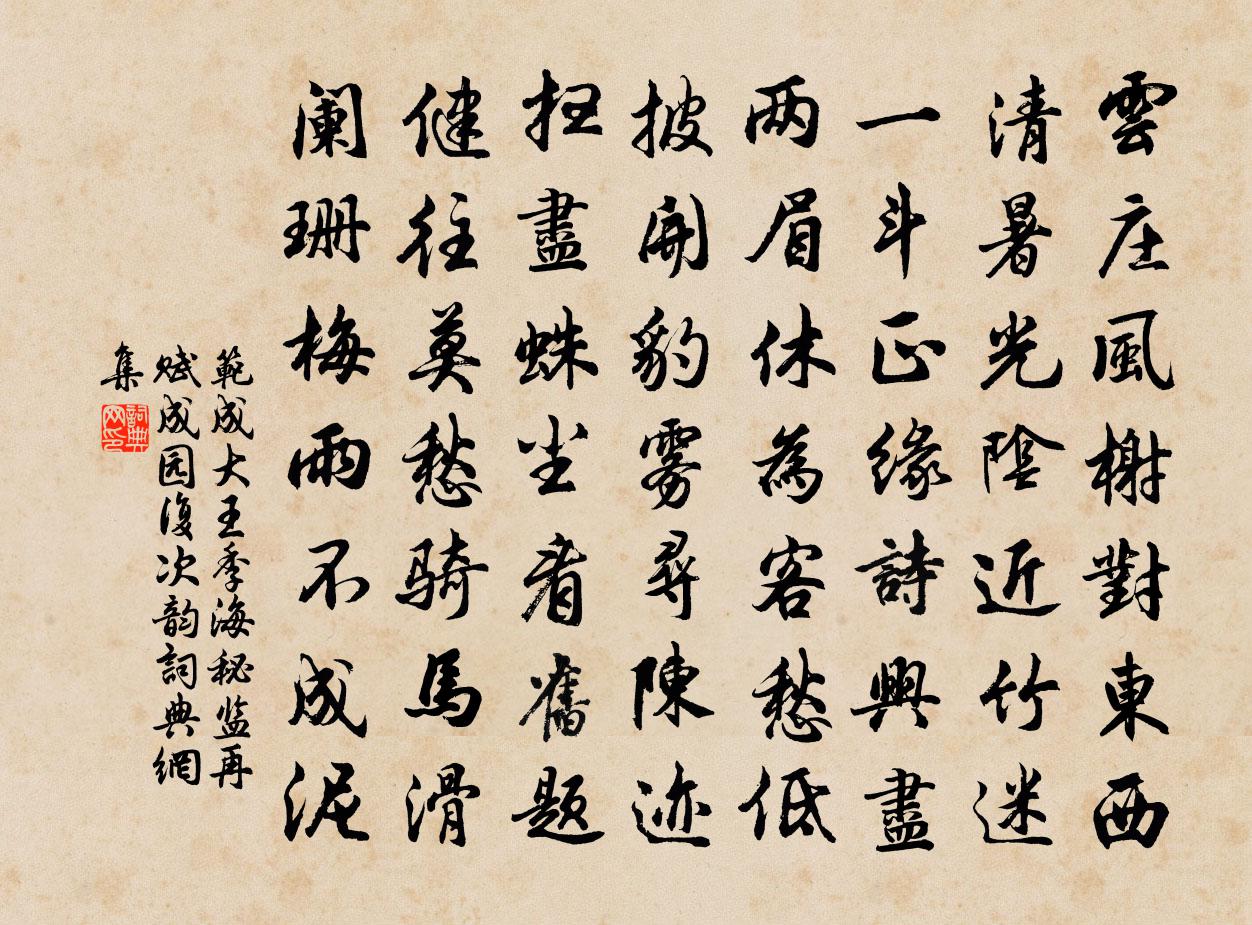 雲庄風榭對東西
清暑光陰近竹迷
一斗正緣詩興盡
两眉休為客愁低
披開豹雾尋陳迹
扫盡蛛尘看舊题
健往莫愁騎馬滑
阑珊梅雨不成泥
範成大王季海秘监再
赋成园復次韵詞典網
集
詞典网印